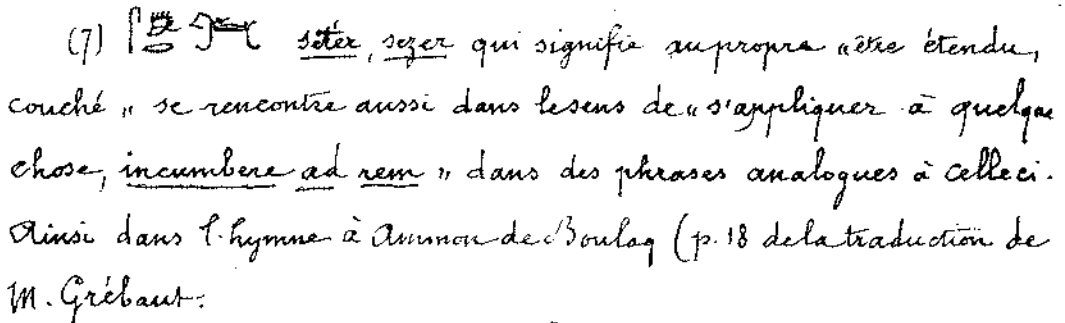 (7) séter, sezer qui signifie au propre „être étendu,
couché„ se rencontre aussi dans le sens de „s'appliquer à quelque
chose, incumbere ad rem„ dans des phrases analogues à celle ci.
Ainsi dans l'hymne à Ammon de Boulaq (p. 18 de la traduction de
M. Grébaut: